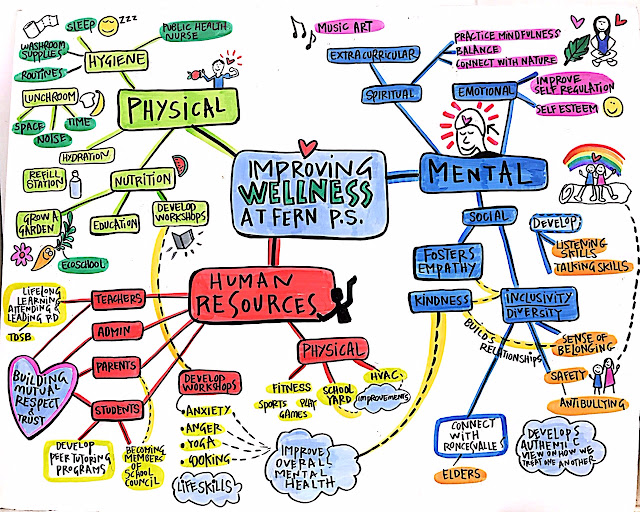 IMPROVING
WELLNESS
AT FERN P.S.
PHYSICAL
HYGIENE
SLEEP
ZZZ
PUBLIC HEALTH
NURSE
WASHROOM
SUPPLIES
ROUTINES
LUNCHROOM
SPACE
NOISE
TIME
HYDRATION
REFILL
STATION
NUTRITION
GROW A
GARDEN
EDUCATION
DEVELOP
WORKSHOPS
ECOSCHOOL
MUSIC ART
EXTRA CURRICULAR
SPIRITUAL
PRACTICE MINDFULNESS
BALANCE
CONNECT WITH NATURE
EMOTIONAL
IMPROVE
SELF REGULATION
SELF ESTEEM
MENTAL
SOCIAL
DEVELOP
LISTENING
SKILLS
TALKING SKILLS
FOSTERS
EMPATHY
KINDNESS
INCLUSIVITY
DIVERSITY
BUILDS
RELATIONSHIPS
SENSE OF
BELONGING
SAFETY
ANTIBULLYING
CONNECT
WITH
RONCESVALLES
ELDERS
DEVELOPS
AUTHENTIC
VIEW ON HOW WE
TREAT ONE ANOTHER
HUMAN
RESOURCES
TEACHERS
LIFELONG
LEARNING
ATTENDING &
LEADING PD
TDSB
ADMIN
PARENTS
STUDENTS
BUILDING
MUTUAL
RESPECT
&
TRUST
DEVELOP
PEER TUTORING
PROGRAMS
BECOMING
MEMBERS
OF
SCHOOL
COUNCIL
DEVELOP
WORKSHOPS
• ANXIETY
• ANGER
• YOGA
• COOKING
LIFESKILLS
IMPROVE
OVERALL
MENTAL
HEALTH
PHYSICAL
FITNESS
SPORTS PLAY
GAMES
SCHOOL
YARD
HVAC
IMPROVEMENTS